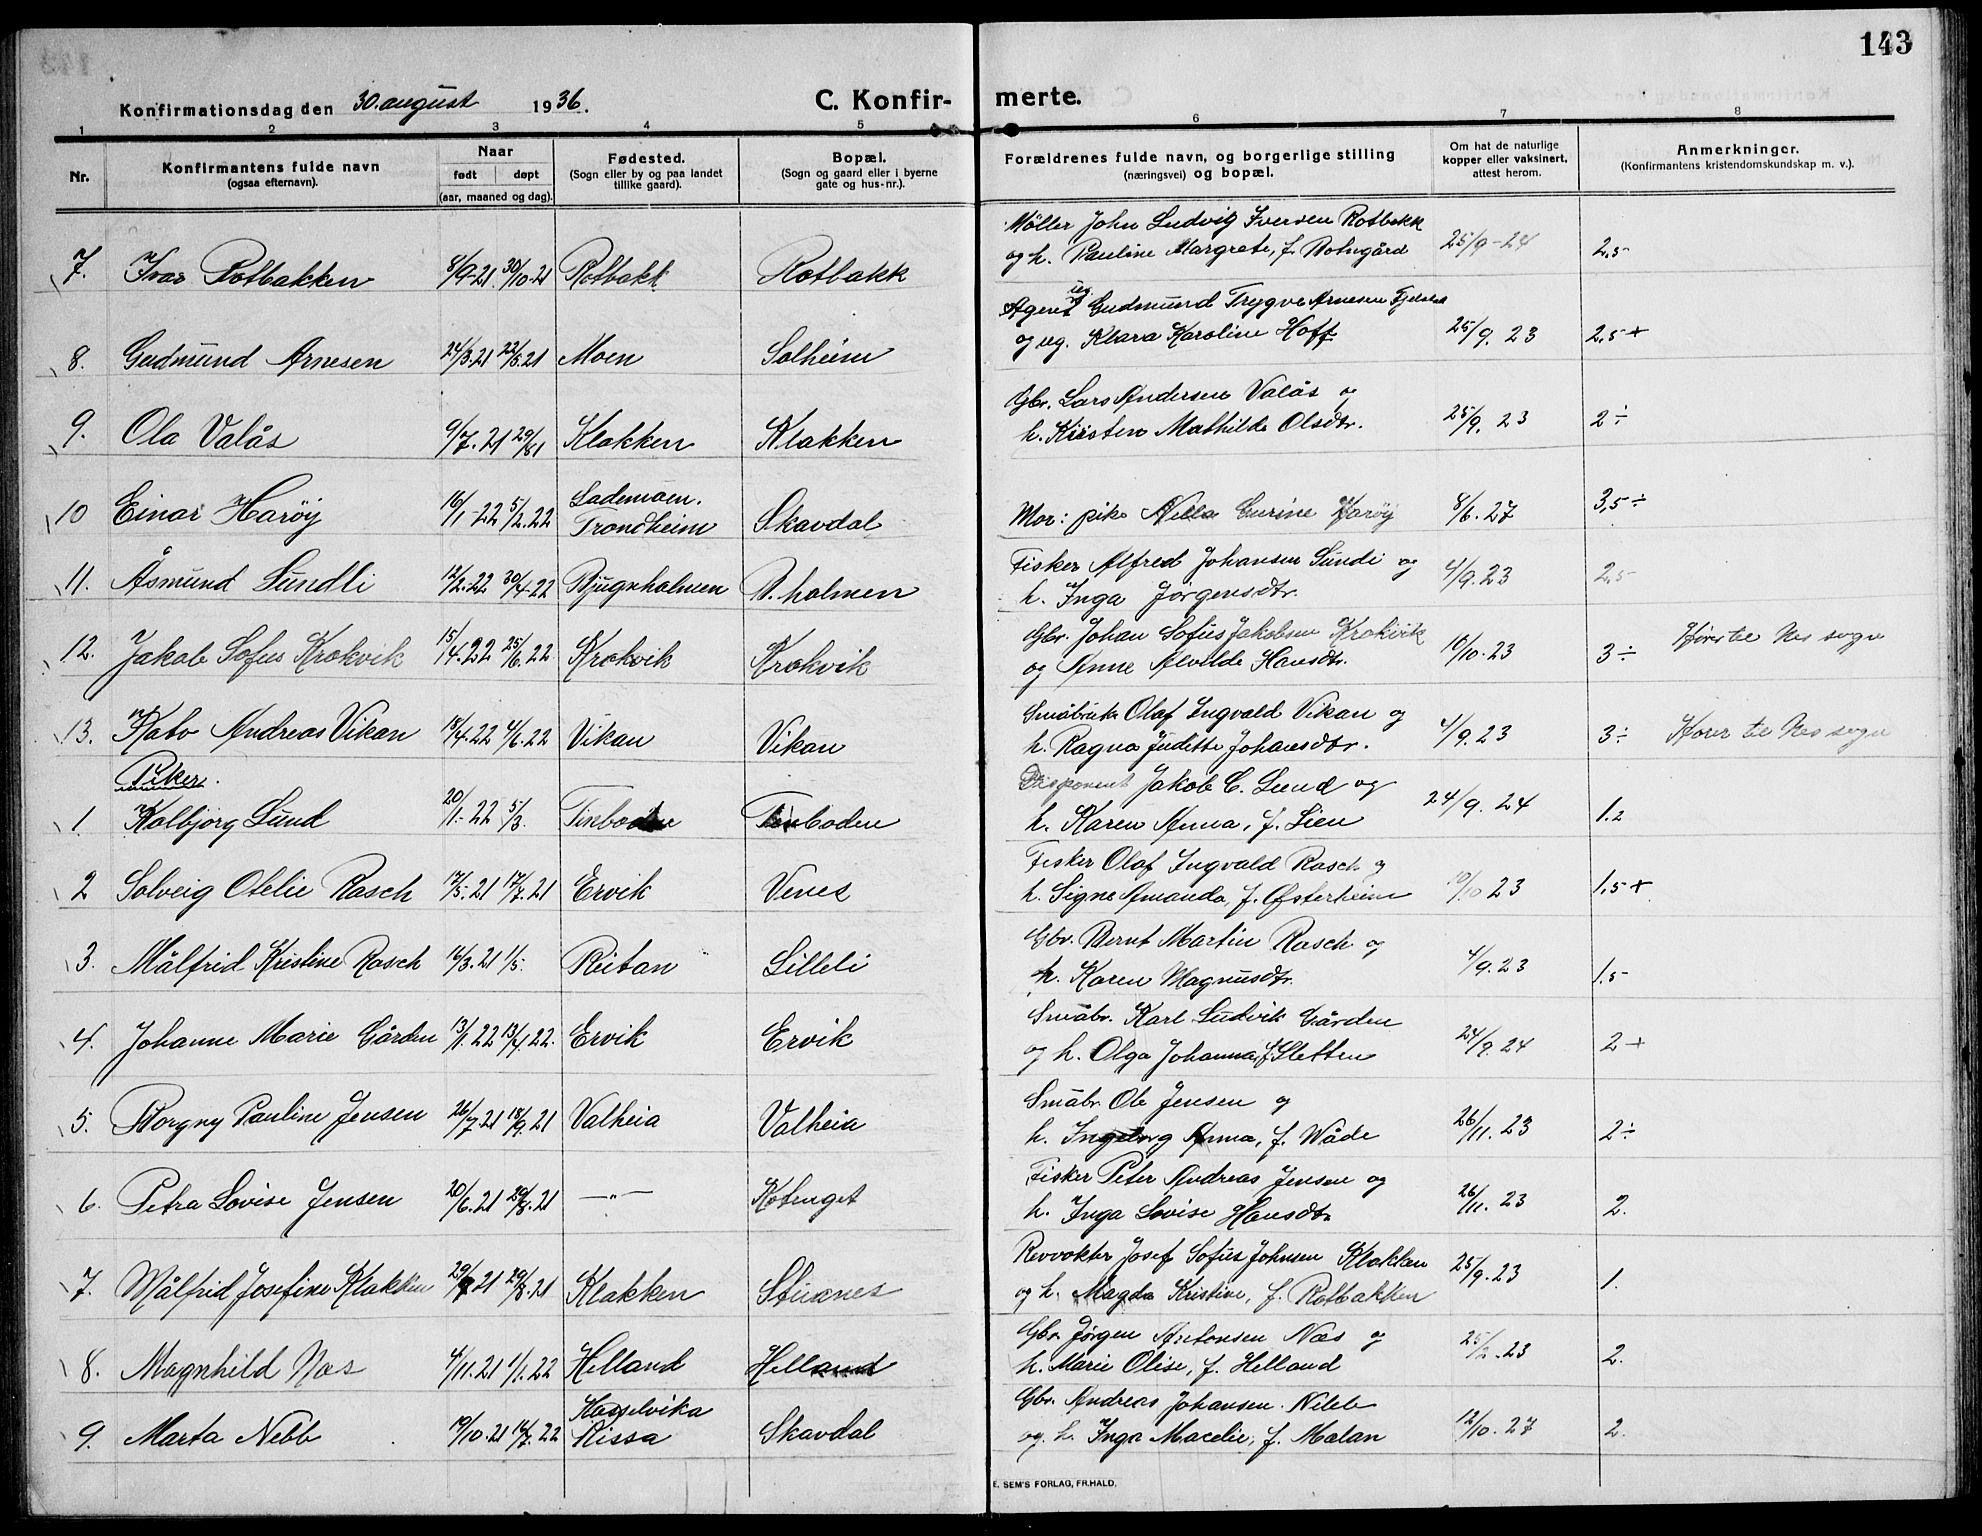 143
Konfirmationsdag den 30. august 1936.
C. Konfirmerte.
1 2 3 4 5 6 7 8
Nr.
Konfirmantens fulde navn
(ogsaa efternavn).
Naar
født døpt
(aar, maaned og dag).
Fødested.
(Sogn eller by og paa landet
tillike gaard).
Bopæl.
(Sogn og gaard eller i byerne
gate og hus-nr.).
Forældrenes fulde navn, og borgerlige stilling
(næringsvei) og bopæl.
Om hat de naturlige
kopper eller vaksinert,
attest herom.
Anmerkninger.
(Konfirmantens kristendomskundskap m. v.).
Møller John Ludvig Iversen Rotbakk
7. Ivar Rotbakken 8/9-21 30/10-21 Rotbakk Rotbakk og h. Pauline Margrete, f. Botngård 25/9-24 2,5
Agent ug. Gudmund Trygve Arnesen
8. Gudmund Arnesen 24/3.21 22/5.21 Moen Solheim og ug. Klara Karoline Hoff 25/9. 23 2,5+
Gbr. Lars Andersen Valås og
9. Ola Valås 9/7.21 29/81 Klakken Klakken h. Kirsten Mathilde Olsdtr. 25/9. 23 2÷
Lademoen.
10 Einar Harøy 16/1-22 5/2.22 Trondheim Skavdal Mor: pike Nella Gurine Harøy 8/6. 27 3,5÷
Fisker Alfred Johansen Sundi og
11. Åsmund Sundli 12/2.22 30/4-22 Bjugnholmen B.holmen h. Inga Jørgensdtr. 4/9.23 2,5
Gbr. Johan Sofus Jakobsen Krokvik
12. Jakob Sofus Krokvik 15/4.22 25/6.22 Krokvik Krokvik og Anne Alvilde Hansdtr. 10/10.23 3÷ Hører til Nes sogn
Småbruk. Olaf Ingvald Vikan og
13. Kato Andreas Vikan 18/4.22 4/6.22 Vikan Vikan h. Ragna Juditte Johansdtr. 4/9.23 3÷ Hører til Nes sogn
Piker.
Disponent Jakob C. Lund og
1 Kolbjørg Lund 20/1-22 5/3. Tinboden Tinboden h. Karen Anna, f. Lien 24/9. 24 1.2
Fisker Olaf Ingvald Rasch og
2 Solveig Otelie Rasch 17/5.21 17/7.21 Ervik Venes h. Signe Amanda, f. Østerheim 10/10 23 1,5+
Gbr. Bernt Martin Rasch og
3. Målfrid Kristine Rasch 16/3.21 1/5. Reitan Lilleli h. Karen Magnusdtr. 4/9.23 1,5
Småbr. Karl Ludvik Gården
4. Johanne Marie Gården 13/1.22 13/4.22. Ervik Ervik og h. Olga Johanna, f. Sletten 24/9.24 2+
Småbr. Ole Jensen og
5. Borgny Pauline Jensen 26/7.21 18/9.21 Valheia Valheia h. Ingeborg Anna, f. Wåde 26/11.23 2÷
Fisker Peter Andreas Jensen og
6. Petra Lovise Jensen 20/6.21 28/8.21 —"— Kotenget h. Inga Lovise Hansdtr 26/11.23 2.
Revvokter Josef Sofus Johnsen Klakken
7. Målfrid Josefine Klakken 29/7 21 29/8.21 Klakken Stuanes og h. Magda Kristine, f. Rotbakken 25/9.23 1.
Gbr. Jørgen Antonsen Næs og
8. Magnhild Næs 4/11.21 1/1.22 Helland Helland h. Marie Olise, f. Helland 25/2.23 2.
Hasselvika
Gbr. Andreas Johansen Nebb
9. Marta Nebb 19/10.21 14/7.22 Rissa Skavdal og h. Inga Macelie, f. Malan 12/10.27 2.
E. SEM'S FORLAG, FR.HALD.